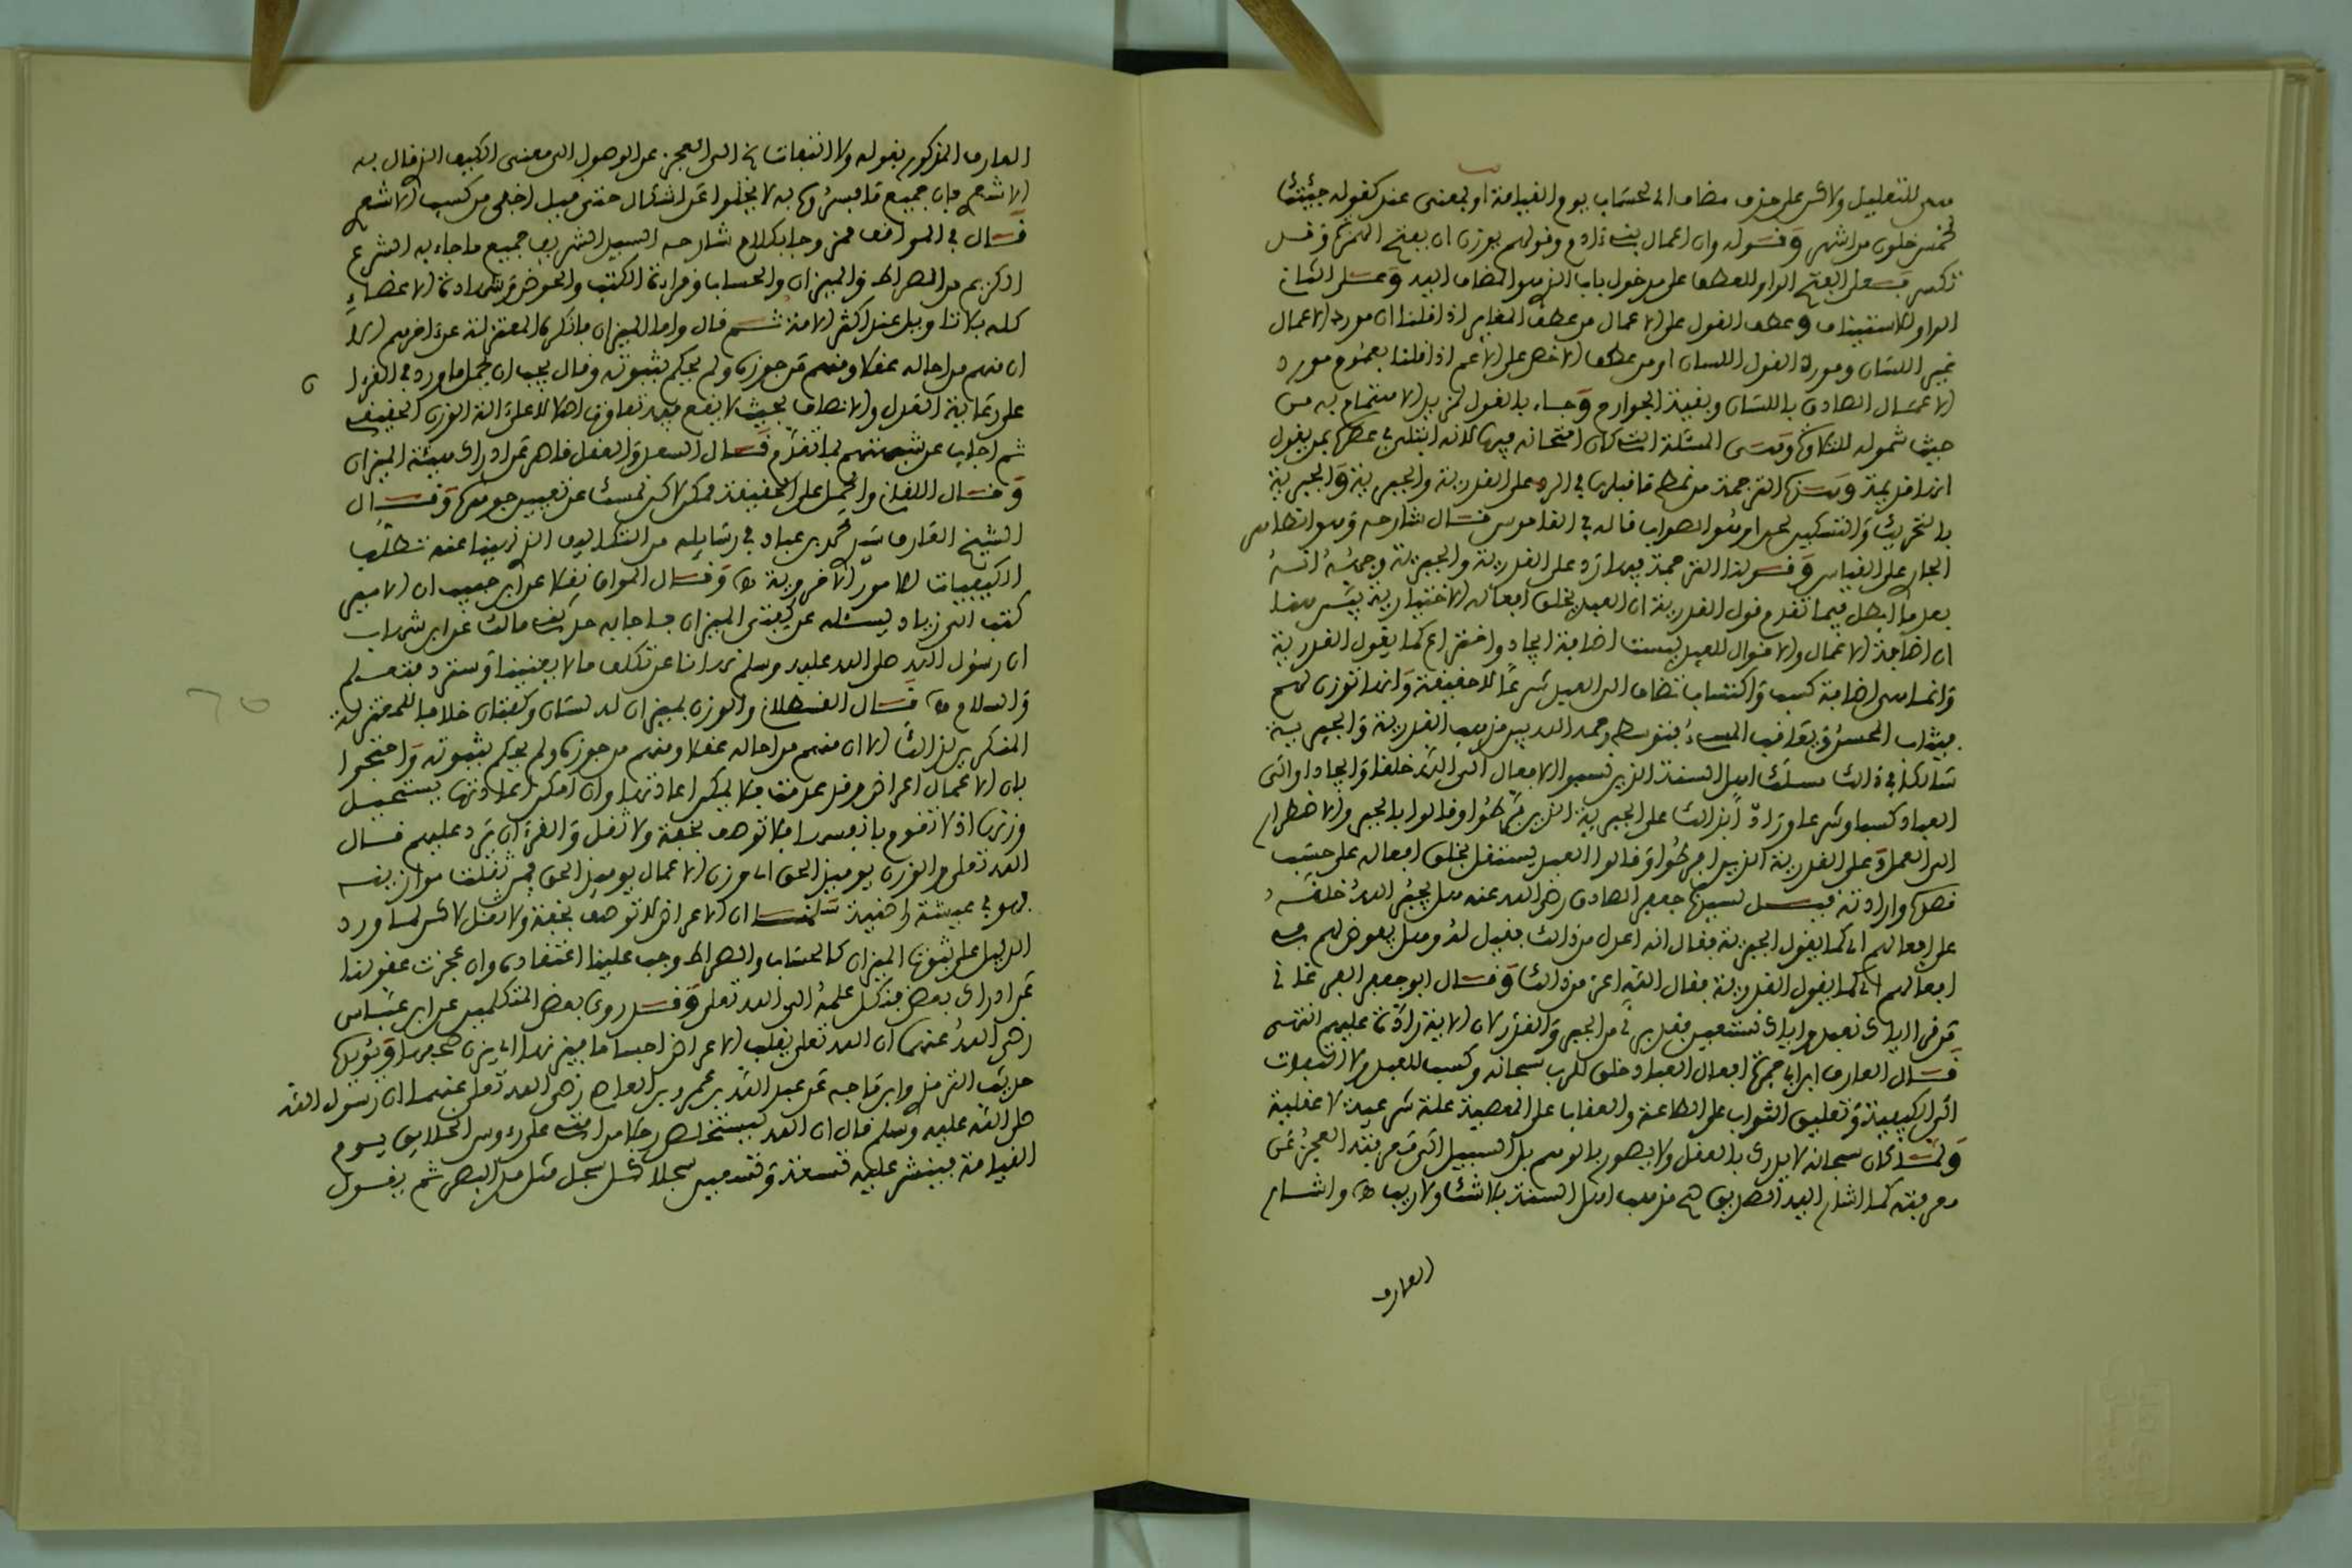 هى للتعليل ولاكن على حذف مضاف اى لحساب يوم القيامة او بمعنى عند كقوله جئتك
لخمس خلون من اشهر وقوله وان اعمال بنى ءادم وقولهم يوزن ان بفتح الهمزة وقد
تكسر فعلى الفتح الواو للعطف على مدخول باب الذى هو المضاف اليه وعلى الثانى
الواو للاستيناف وعطف القول على الاعمال من عطف المغاير اذا قلنا ان مورد الاعمال
غير اللسان ومورد القول اللسان او من عطف الاخص على الاعم اذا قلنا بعموم مورد
الاعمال الصادق باللسان وبقية الجوارح وجاء بالقول لمزيد الاهتمام به من
حيث شموله للنطق وهى المسئلة التى كان امتحانه فيها لانه ابتلى فى عصره بمن يقول
انها قديمة وهذه الترجمة من نمط ما قبلها فى الرد على القدرية والجبرية والجبرية
بالتحريك والتسكين لحن او هو الصواب قاله فى القاموس قال شارحه وهو الظاهر
الجارى على القياس وقولنا الترجمة فيها رد على القدرية والجبرية وجهه انه
بعد ما ابطل فيما تقدم قول القدرية ان العبد يخلق افعاله الاختيارية بين هنا
ان اضافة الاعمال والاقوال للعبد ليست اضافة ايجاد واختراع كما يقول القدرية
وانما هى اضافة كسب واكتساب تضاف الى العبد شرعا لا حقيقة وانها توزن لهم
فيثاب المحسن ويعاقب المسىء فتوسط رحمه الله بين مذهب القدرية والجبرية
سالكا فى ذلك مسلك اهل السنة الذين نسبوا الافعال الى الله خلقا وايجادا والى
العباد كسبا وشرعا ورادا بذلك على الجبرية الذين فرطوا وقالوا بالجبر والاضطرار
الى العمل وعلى القدرية الذين افرطوا وقالوا العبد يستقل بخلق افعاله على حسب
قصده وارادته قيل لسيدنا جعفر الصادق رضى الله عنه هل يجبر الله خلقه
على افعالهم اى كما يقول الجبرية فقال انه اعدل من ذلك فقيل له وهل يفوض لهم فى
افعالهم اى كما يقول القدرية فقال الله اعز من ذلك وقال ابو جعفر الغرناطى
من قرا اياك نعبد واياك نستعين فقد برئ من الجبر والقدر لان الاية رادة عليهم انتهى
قال العارف ابن ابى جمرة افعال العباد خلق للرب سبحانه وكسب للعبد ولا التفات
الى الكيفية وتعليق الثواب على الطاعة والعقاب على المعصية علة شرعية لا عقلية
ولما كان سبحانه لا يدرى بالعقل ولا يصور بالوهم بل السبيل الى معرفته العجز عن
معرفته كما اشار اليه الصديق هى مذهب اهل السنة بلا شك ولا ريب اه واشار
العارف
العارف المذكور بقوله ولا التفات الخ الى العجز عن الوصول الى معنى الكسب الذى قال به
الاشعرى فان جميع ما فسروه به لا يخلوا عن اشكال حتى قيل اخفى من كسب الاشعرى
قال فى المواقف ممزوجا بكلام شارحه السيد الشريف جميع ما جاء به الشرع
الكريم من الصراط والميزان والحساب وقراءة الكتب والحوض وشهادة الاعضاء
كله بلا تاويل عند اكثر الامة ثم قال واما الميزان فانكره المعتزلة عن ءاخرهم الا
ان منهم من احاله عقلا ومنهم من جوزه ولم يحكم بثبوته وقال يجب ان يحمل ما ورد فى القرءا ن
على رعاية العدل والانصاف بحيث لا يقع فيه تفاوت اصلا لا على ءالة الوزن الحقيقى
ثم اجاب عن شبهتهم بما تقدم قال السعد والعقل قاصر عن ادراك هيئة الميزان
وقال اللقانى والحمل على الحقيقة ممكن لاكن نمسك عن تعيين جوهره وقال
الشيخ العارف سيدى محمد بن عباد فى رسايله من التكاليف الذى نهينا عنه تطلب
الكيفيات للامور الاخروية اه وقال المواق نقلا عن ابن حبيب ان الامير
كتب الى زياد يسئله عن كفتى الميزان فاجابه حديث مالك عن ابن شهاب
ان رسول الله صلى الله عليه وسلم نهانا عن تكلف ما لا يعنينا وسترد فتعلم
والسلام اه قال القسطلانى والوزن بميزان له لسان وكفتان خلافا للمعتزلة
المنكرين لذلك الا ان منهم من احاله عقلا ومنهم من جوزه ولم يحكم بثبوته واحتجوا
بان الاعمال اعراض وقد عدمت فلا يمكن اعادتها وان امكن اعادتها يستحيل
وزنها اذ لا تقوم بانفسها فلا توصف بخفة ولا ثقل والقرءان يرد عليهم قال
الله تعلى والوزن يوميذ الحق اى وزن الاعمال يوميذ الحق فمن ثقلت موازينه
فهو فى عيشة راضية سلمنا ان الاعراض لا توصف بخفة ولا ثقل لاكن لما ورد
الدليل على ثبوت الميزان كالحساب والصراط وجب علينا اعتقاده وان عجزت عقولنا
عن ادراك بعض فنكل علمه الى الله تعلى وقد روى بعض المتكلمين عن ابن عباس
رضى الله عنهما ان الله تعلى يقلب الاعراض اجساما فيزنها اى يزن صحفها ويؤيده
حديث الترمذى وابن ماجه عن عبد الله بن عمرو بن العاص رضى الله تعلى عنهما ان رسول الله
صلى الله عليه وسلم قال ان الله يستخلص رجلا من امته على رءوس الخلايق يوم
القيامة فينشر عليه تسعة وتسعين سجلا كل سجل مثل مد البصر ثم يقول